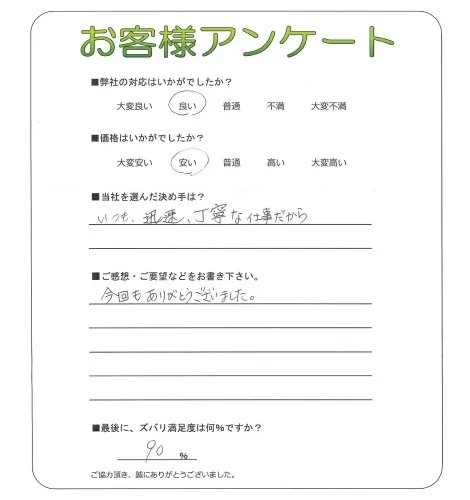 お客様アンケート
■弊社の対応はいかがでしたか？
大変良い 良い 普通 不満 大変不満
■価格はいかがでしたか？
大変安い 安い 普通 高い 大変高い
■当社を選んだ決め手は？
いつも、迅速、丁寧な仕事だから
■ご感想・ご要望などをお書き下さい。
今回もありがとうございました。
■最後に、ズバリ満足度は何%ですか？
90 %
ご協力頂き、誠にありがとうございました。